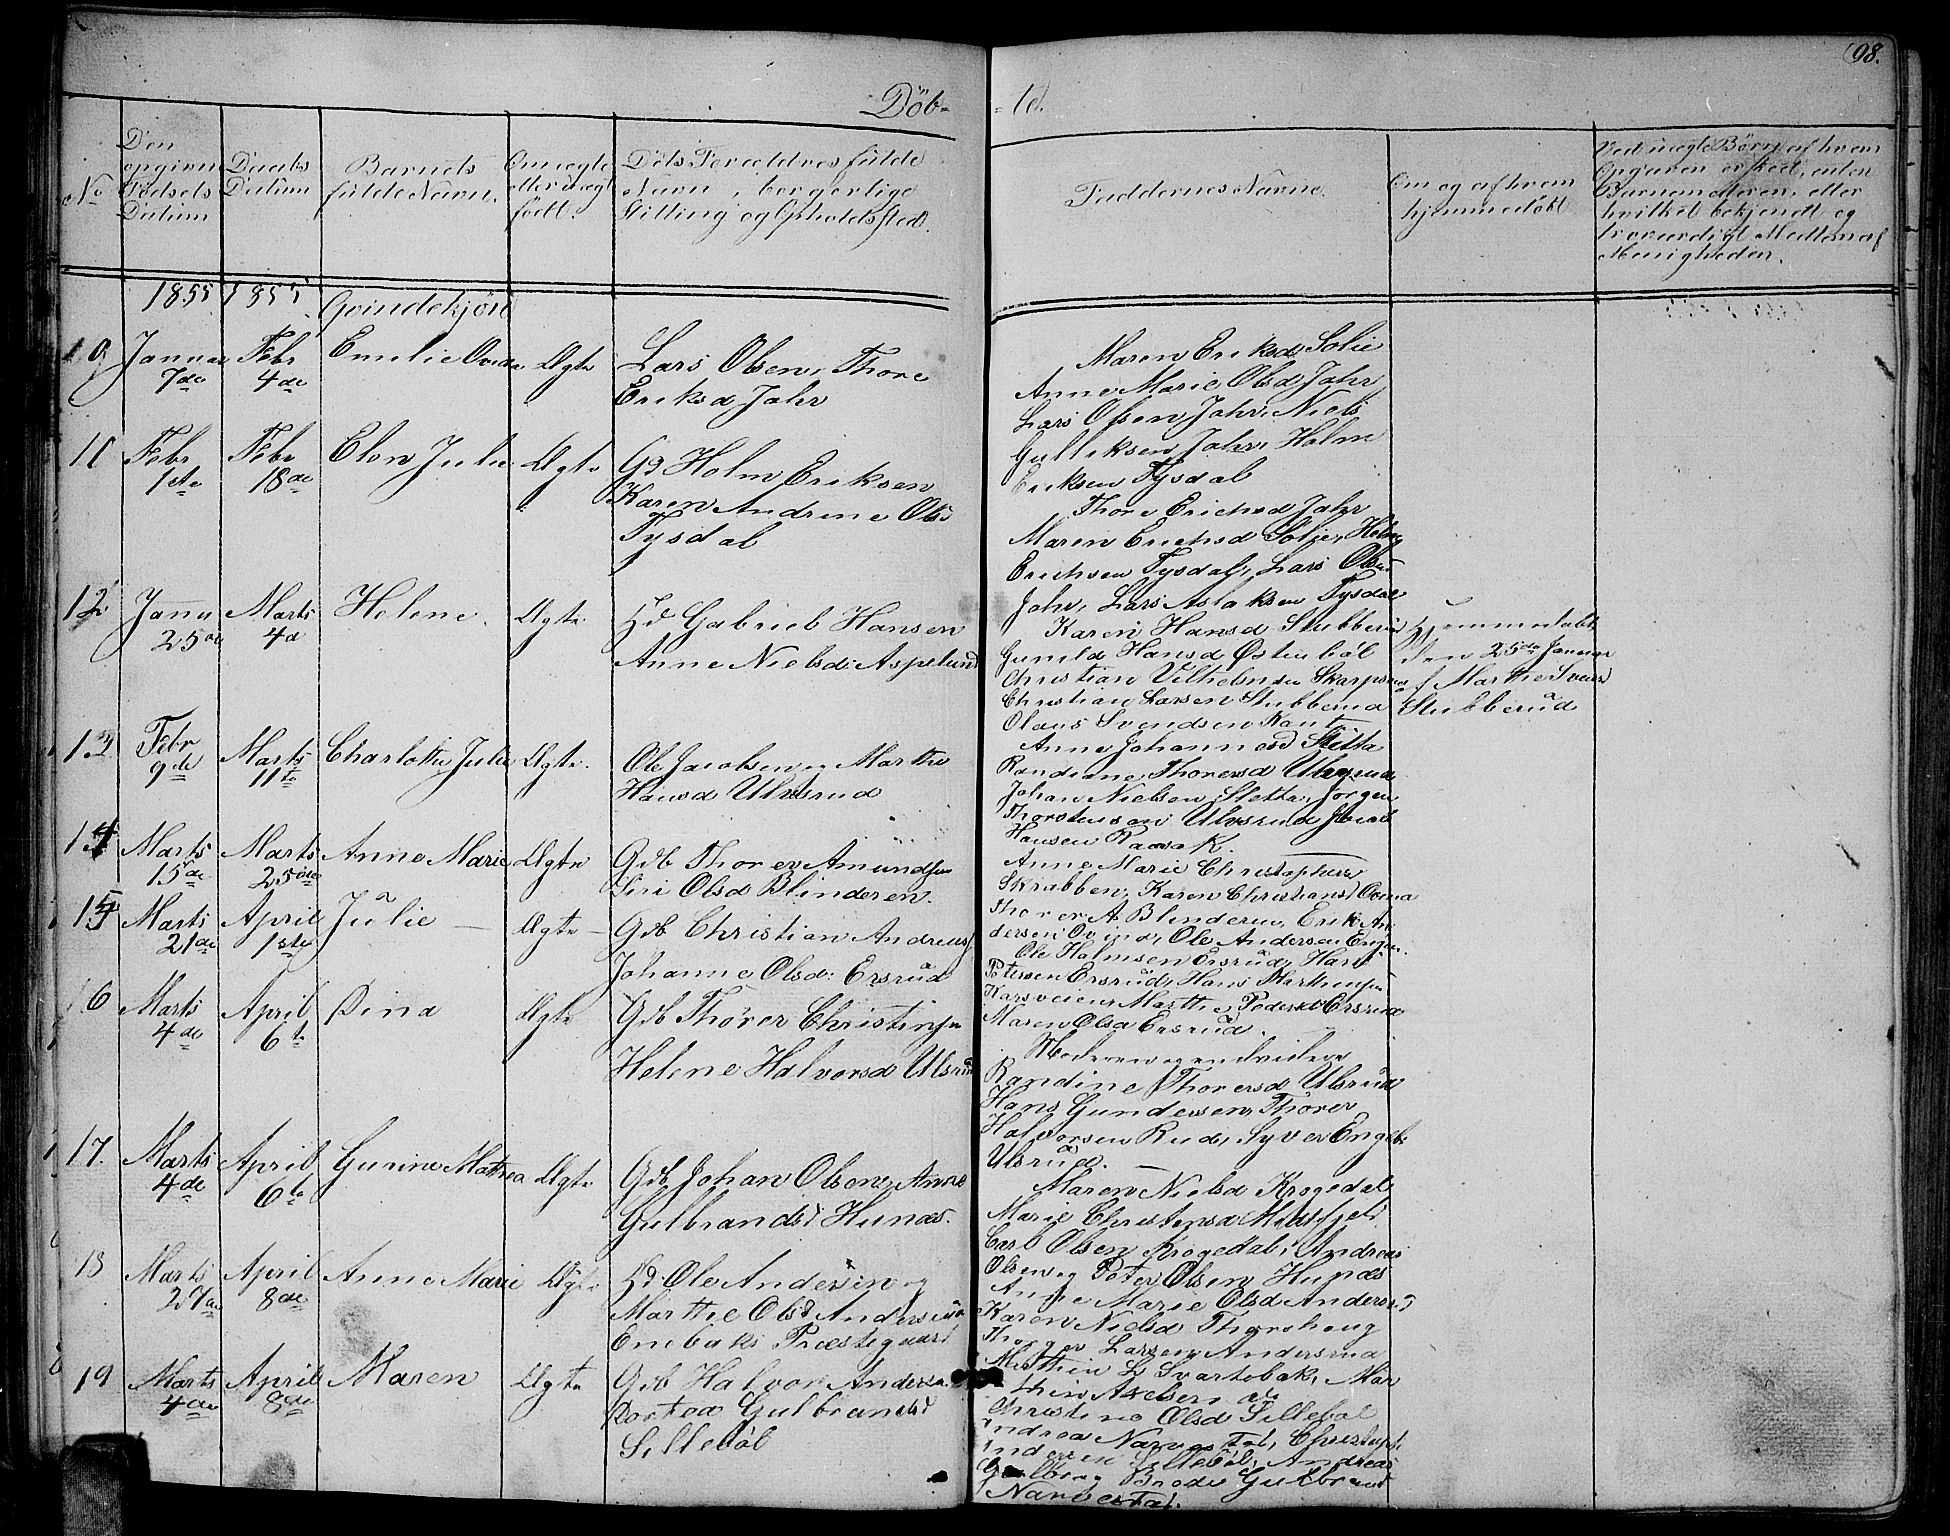 98.
Døb-
-te.
No
Den
opgivne
Fødsels
Datum
Daabs
Datum
Barnets
fulde Navn.
Om ægte
eller uægte
født.
Dets Forældres fulde
Navn, borgerlige
Stilling og Opholdssted.
Faddernes Navne.
Om og af hvem
hjemmedøbt
Ved uægte Børn, af hvem
Opgaven er skeet, enten
Barnemoderen, eller
hvilket bekjendt og
troværdigt Medlem af
Menigheden.
1855 1855 Qvindekjøn
Januar
7de
Febr
4de
Emilie
Ægte
Lars Olsen, Thore
Eriksd Jahr
Maren Eriksd Solie
Anne Marie Olsd Jahr
Lars Olsen Jahr, Niels
Gulliksen Jahr, Holm
Eriksen Tysdal
11
Febr
1ste
Febr
18de
Elen Julie
Ægte
Gd Holm Eriksen
Karen Andrine Olsd
Tysdal
Thore Erichsd Jahr
Maren Erichsd Solje, Helmer
Erichsen Tysdal, Lars Olsen
Jahr, Lars Aslaksen Tysdal
12
Janu
25de
Marts
4d
Helene.
Ægte
Hd Gabriel Hansen
Anne Nielsd: Aspelund
Karen Hansd Stubberud
Gunild Hansd Østenbøl
Christian Vilhelmsen Skarpsnes
Christian Larsen Stubberud
Olaus Svendsen Kant
Hjemmedøbt
den 25de Januar
af Marthe Svens
Stubberud
13
Febr
9de
Marts
11te
Charlotte Julie
Ægte.
Ole Jacobsen og Marthe
Hansd Ulvsrud
Anne Johannesd Sletta
Randiane Thoresd Ulvsrud
Johan Nielsen Sletta, Jørgen
Thorstensen Ulvsrud
Hansen
14
Marts
15de
Marts
25de
Anne Marie
Ægte
Gdb Thorer Amundsen
Siri Olsd Blinderen.
Anne Marie Christophersd
Skrabben, Karen Christiansd
Thorer A Blinderen, Erik An
dersen Ovind, Ole Andersen
15
Marts
21de
April
1ste
Julie
Ægte
Gdb Christian Andreas
Johanne Olsd: Ersrud
Ole Holmsen Ersrud, Hans
Petersen Ersrud, Hans Marthinsen
Karsveien Marthe Pedersd Ersrud
Maren Olsd Ersrud.
16
Marts
4de
April
6te
Dina
Ægte
Gdb Thorer Christensen
Helene Halvorsd Ulsrud
Moderen og endvidere
Randine Thoresd Ulsrud
Hans Gundersen, Thorer
Halvorsen Rud, Syver Engeb.
Ulsrud.
17.
Marts
4de
April
6te
Gunine Mathea
Ægte
Gdb Johan Olsen, Anne
Gulbrandsd Hunæs.
Maren Nielsd Krogedal
Marie Christensd
Carl Olsen Krogedal, Andreas
Olsen og Peter Olsen Hunæs
18
Marts
27de
April
8de
Anne Marie
Ægte
Hd Ole Andersen og
Marthe Olsd Andersrud
Enebaks Præstegaard
Anne Marie Olsd Andersrud
Karen Nielsd Thorshaug
Larsen Andersrud
L Svartebak, Mar
thin Axelsen
19
Marts
4de
April
8de
Maren
Ægte
Gdb Halvor Andersen
Dortea Gulbrandsd
Sillebøl
Christine Olsd Sillebøl
Andrea Narvestal, Christoph
Andersen Sillebøl, Andreas
Gulbrand
Narvestal.